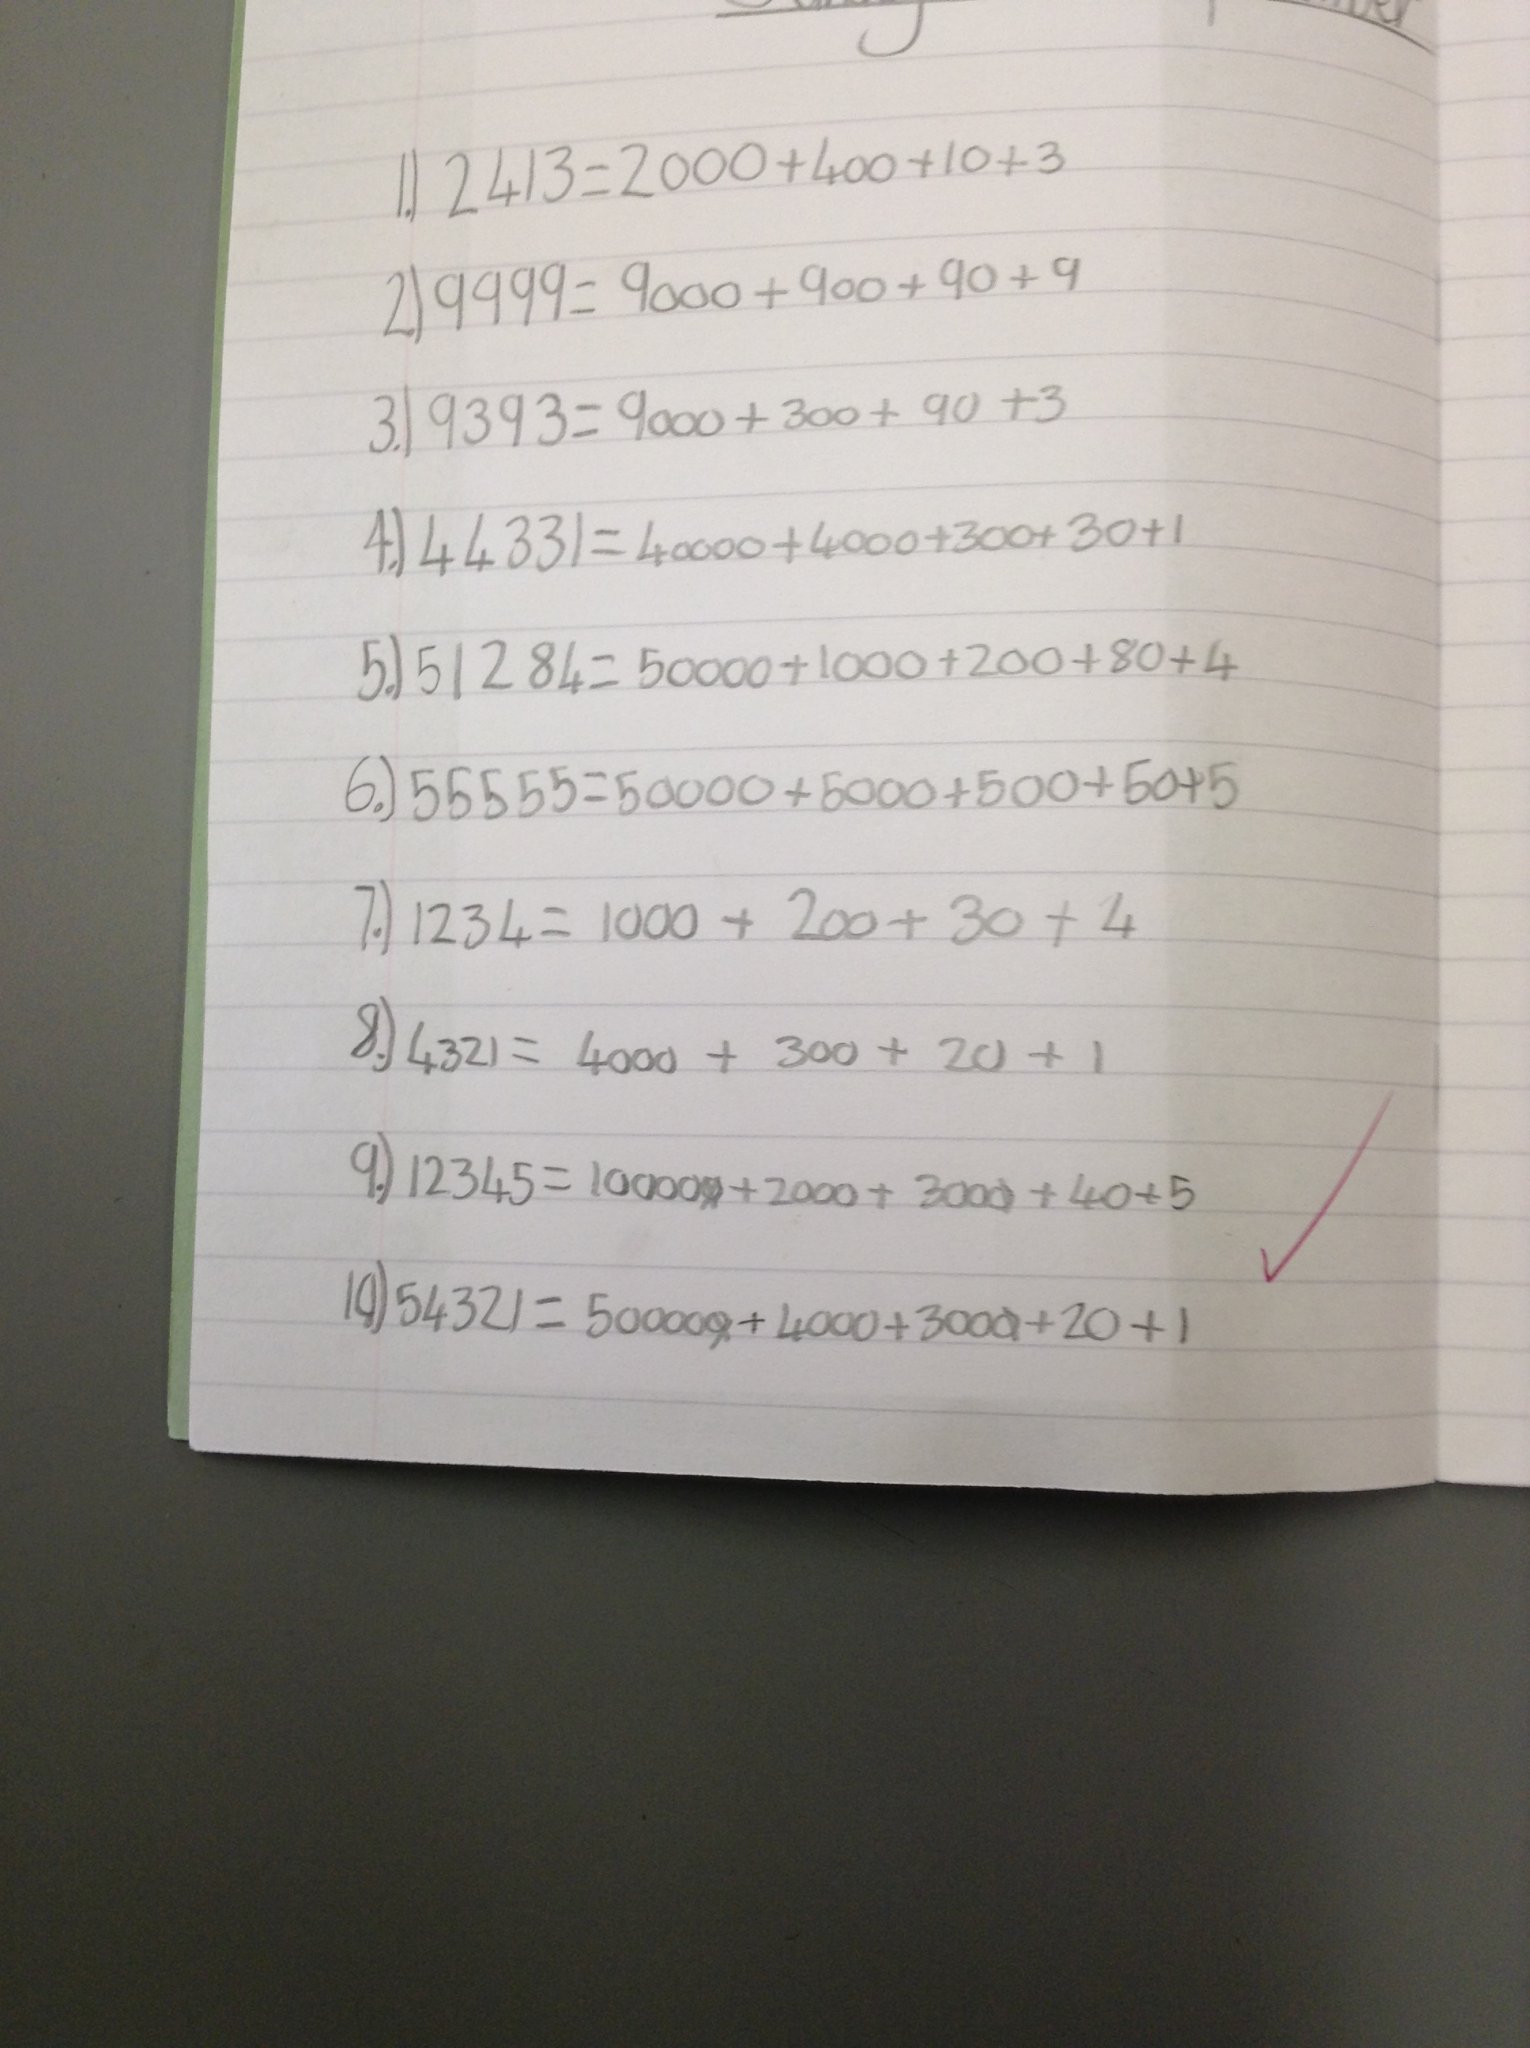 1.) 2413=2000+400+10+3
2.) 9999= 9000+900+90+9
3.) 9393= 9000+300+ 90 +3
4.) 44331=40000+4000+300+30+1
5.) 51284= 50000+1000+200+80+4
6.) 55555=50000+5000+500+50+5
7.) 1234= 1000 + 200+ 30 + 4
8.) 4321= 4000 + 300 + 20 + 1
9.) 12345= 10000+2000+ 300 +40+5
10.) 54321= 50000+4000+300+20+1